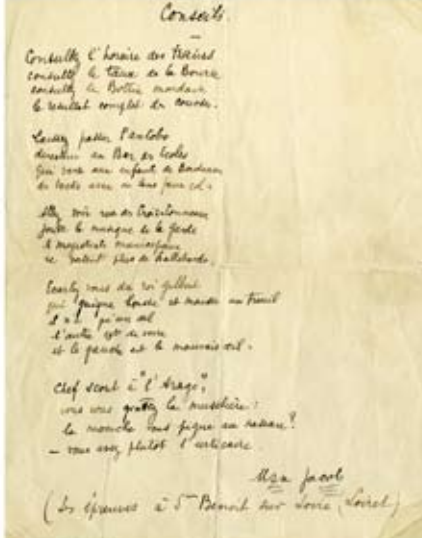 Conseils.
Consultez l'horaire des trains
consultez le taux de la Bourse
consultez le Bottin mondain
le résultat complet des courses.
Laissez passer l'autobs
direction au Bar des Ecoles
qui aux enfants de Bordeaux
de
Allez voir rue des Trois Tonneaux
la musique de la garde
ne plus de hallebarde.
Ecartez vous du roi Gilbert
qui guigne et un treuil
il n'a qu'un œil
l'autre est de verre
et le gauche est le mauvais œil.
Chef scout à "l'Arago",
vous vous grattez la muselière :
la mouche vous pique au naseau ?
— vous avez plutôt l'urticaire.
Max Jacob
(les épreuves à St Benoit sur Loire (Loiret)